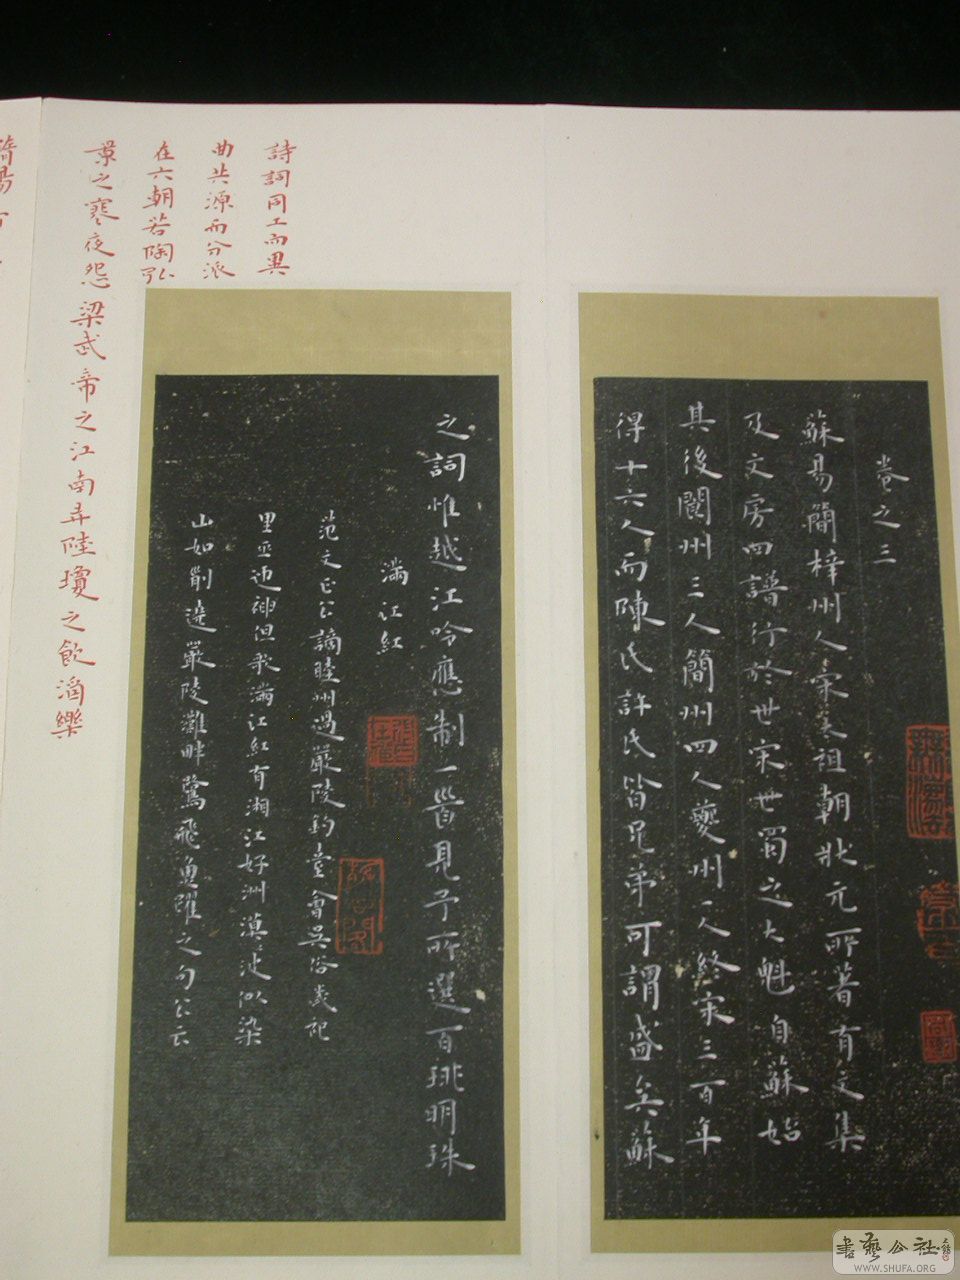 卷之三
蘇易簡梓州人宋太祖朝狀元所著有文集
及文房四譜行於世宋世蜀之大魁自蘇始
其後閬州三人簡州四人夔州一人終宋三百年
得十六人而陳氏許氏皆兄弟可謂盛矣蘇
之詞惟越江吟應制一首見予所選百琲明珠
滿江紅
范文正公謫睦州過嚴陵釣臺會吳俗歲祀
里巫迎神但歌滿江紅有湘江好洲漠波似染
山如削遶嚴陵灘畔鷺飛魚躍之句公云
詩詞同工而異
曲共源而分派
在六朝若陶弘
景之寒夜怨梁武帝之江南弄陸瓊之飲酒樂
書藝公社
WWW.SHUFA.ORG